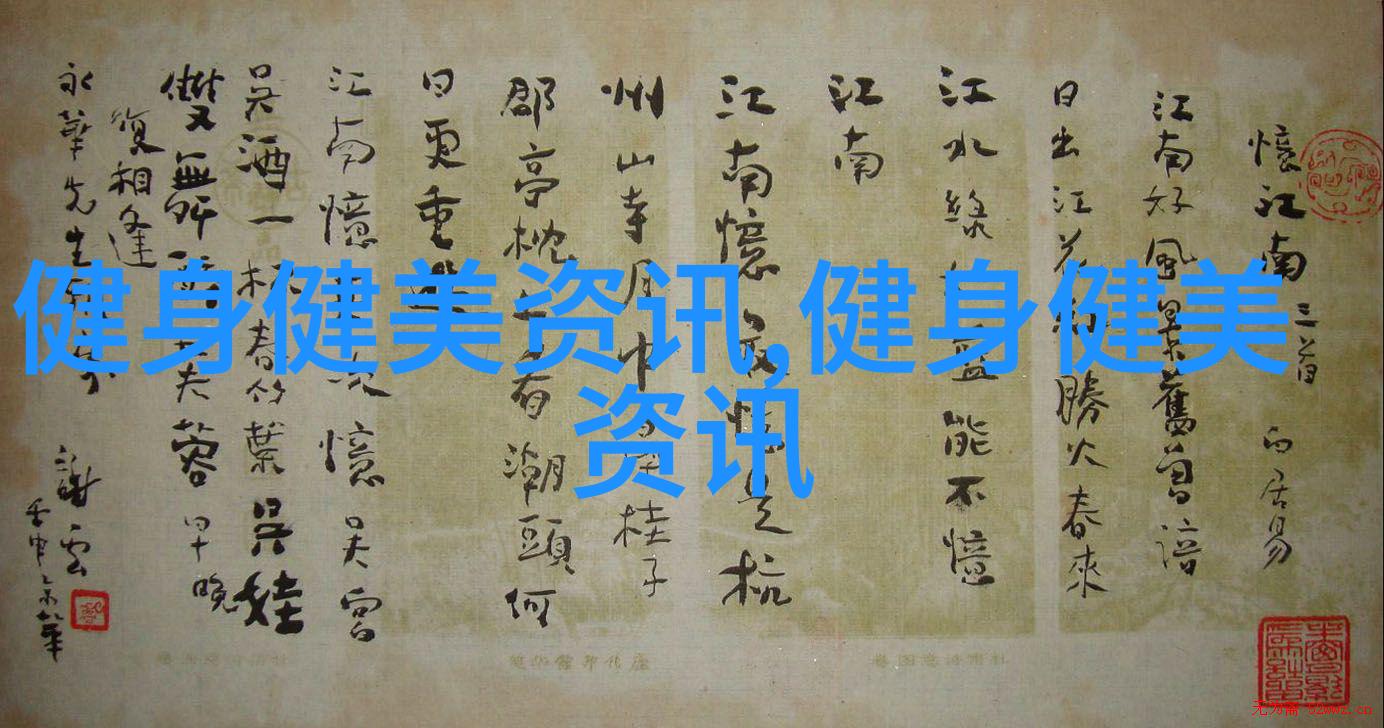 憶江南三首 白居易
江南好風景舊曾諳
日出江花紅勝火春來
江水綠藍能不憶
江南
江南憶最憶是杭
州山寺月中尋桂子
郡亭枕上看潮頭何
日更重
江南憶其次憶吳宮
吳酒一杯春竹葉吳娃
雙芙蓉早晚
復相逢
永華先生
謝雲
壬申京華
健身健美资讯,健身健美
资讯